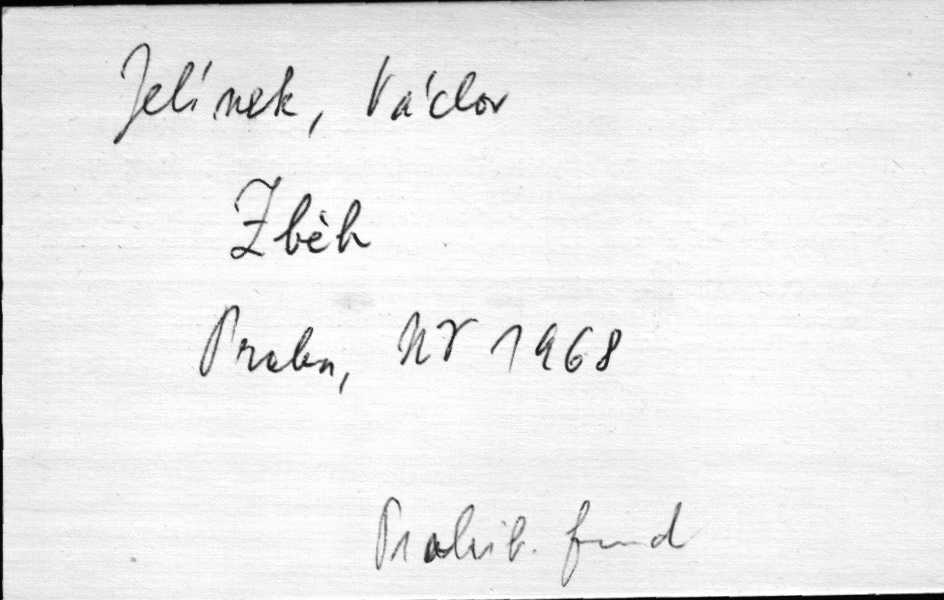 Jelínek, Václav
Zběh
Praha, NV 1968
Prohib. fond